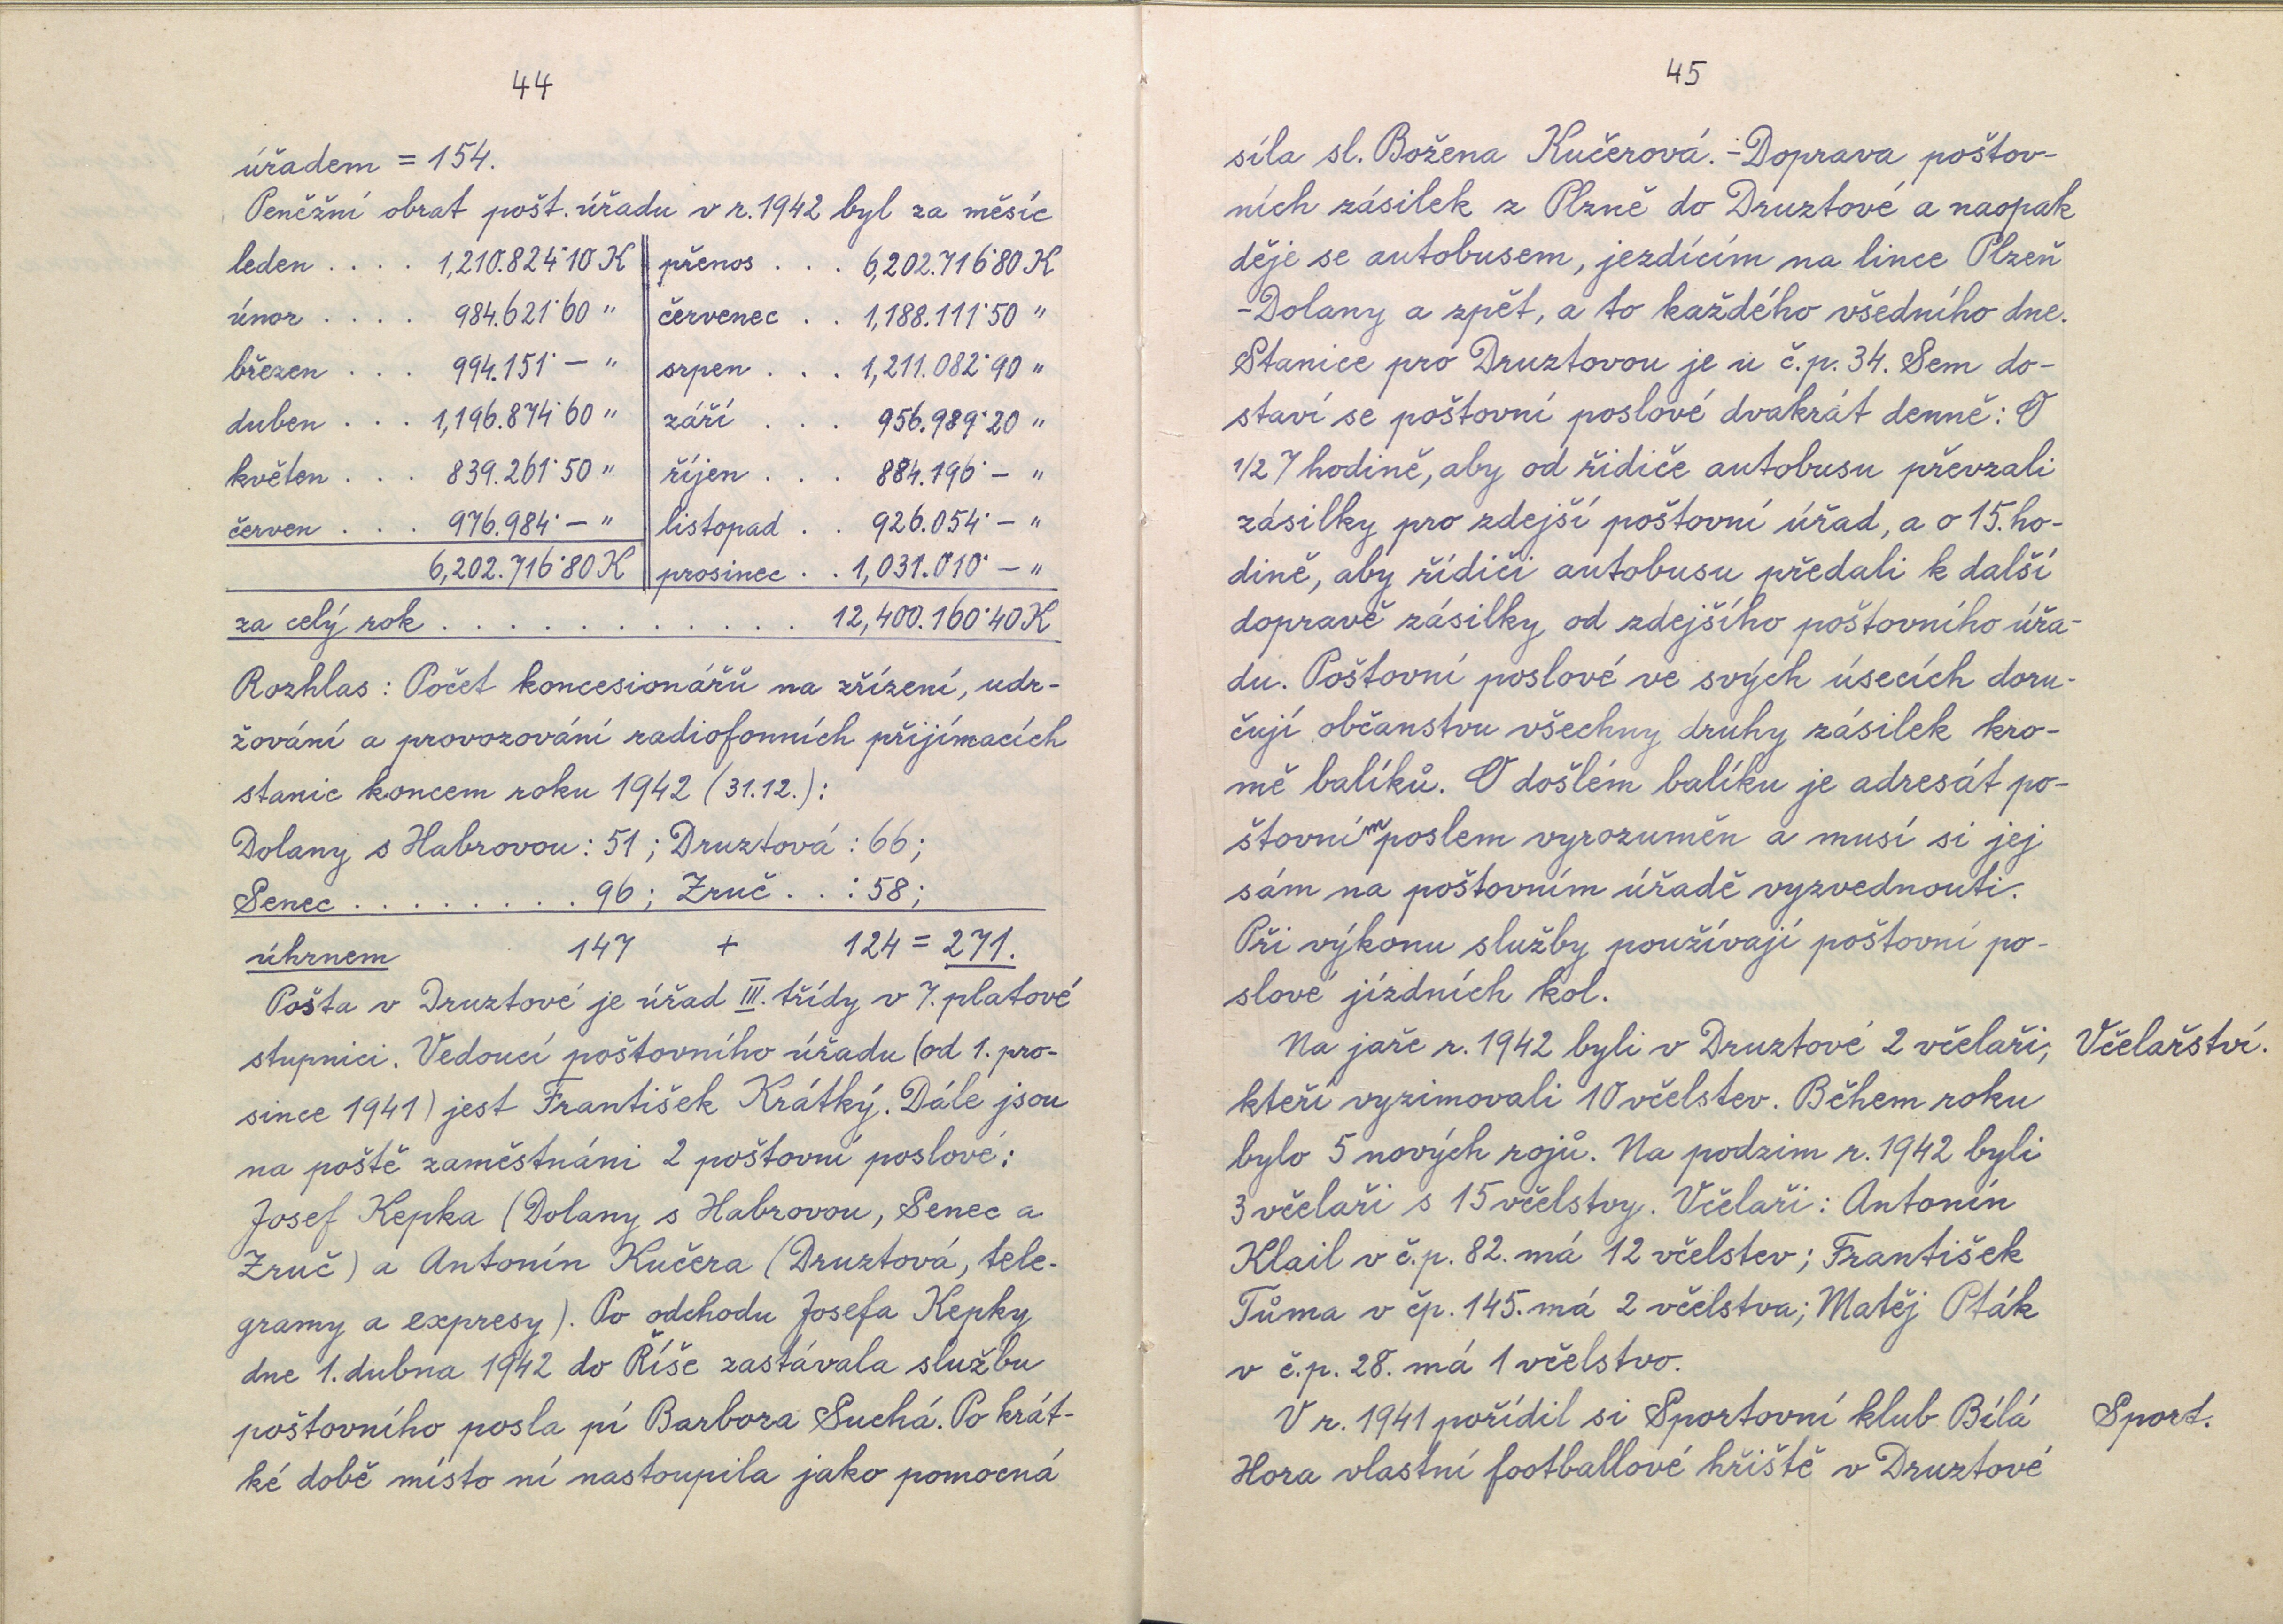 44
úřadem = 154.
Peněžní obrat pošt. úřadu v r. 1942 byl za měsíc
leden . . . . 1,210.824·10 K přenos . . . 6,202.716·80 K
únor . . . . 984.621·60 " červenec . . 1,188.111·50 "
březen . . . 994.151·— " srpen . . . 1,211.082·90 "
duben . . . 1,196.874·60 " září . . . 956.989·20 "
květen . . . 839.261·50 " říjen . . . 884.196·— "
červen . . . 976.984·— " listopad . . 926.054·— "
6,202.716·80 K prosinec . . 1,031.010·— "
za celý rok . . . . . . . . . . . . 12,400.160·40 K
Rozhlas : Počet koncesionářů na zřízení, udr-
žování a provozování radiofonních přijímacích
stanic koncem roku 1942 (31.12.) :
Dolany s Habrovou : 51 ; Druztová : 66 ;
Senec . . . . . . . . . 96 ; Zruč . . : 58 ;
úhrnem 147 + 124 = 271.
Pošta v Druztové je úřad III. třídy v 7. platové
stupnici. Vedoucí poštovního úřadu (od 1. pro-
since 1941) jest František Krátký. Dále jsou
na poště zaměstnáni 2 poštovní poslové :
Josef Kepka (Dolany s Habrovou, Senec a
Zruč) a Antonín Kučera (Druztová, tele-
gramy a expresy). Po odchodu Josefa Kepky
dne 1. dubna 1942 do Říše zastávala službu
poštovního posla pí Barbora Suchá. Po krát-
ké době místo ní nastoupila jako pomocná
45
síla sl. Božena Kučerová. - Doprava poštov-
ních zásilek z Plzně do Druztové a naopak
děje se autobusem, jezdícím na lince Plzeň
- Dolany a zpět, a to každého všedního dne.
Stanice pro Druztovou je u č.p. 34. Sem do-
staví se poštovní poslové dvakrát denně : O
1/2 7 hodině, aby od řidiče autobusu převzali
zásilky pro zdejší poštovní úřad, a o 15. ho-
dině, aby řídiči autobusu předali k další
dopravě zásilky od zdejšího poštovního úřa-
du. Poštovní poslové ve svých úsecích doru-
čují občanstvu všechny druhy zásilek kro-
mě balíků. O došlém balíku je adresát po-
štovním poslem vyrozuměn a musí si jej
sám na poštovním úřadě vyzvednouti.
Při výkonu služby používají poštovní po-
slové jízdních kol.
Na jaře r. 1942 byli v Druztové 2 včelaři, Včelařství.
kteří vyzimovali 10 včelstev. Během roku
bylo 5 nových rojů. Na podzim r. 1942 byli
3 včelaři s 15 včelstvy. Včelaři : Antonín
Klail v č.p. 82. má 12 včelstev ; František
Tůma v čp. 145. má 2 včelstva ; Matěj Pták
v č.p. 28. má 1 včelstvo.
V r. 1941 pořídil si Sportovní klub Bílá Sport.
Hora vlastní footballové hřiště v Druztové